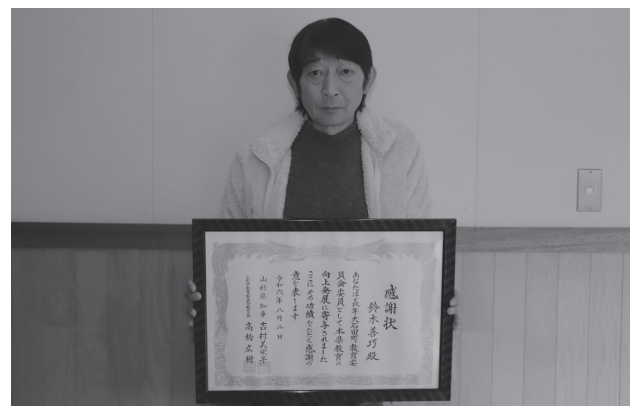 感謝状
鈴木善巧殿
あなたは長年大石田町教育委
員会委員として本県教育の
向上発展に寄与されました
ここにその功績をたたえ感謝の
意を表します
令和六年八月二日
山形県知事 吉村美栄子
高橋広樹